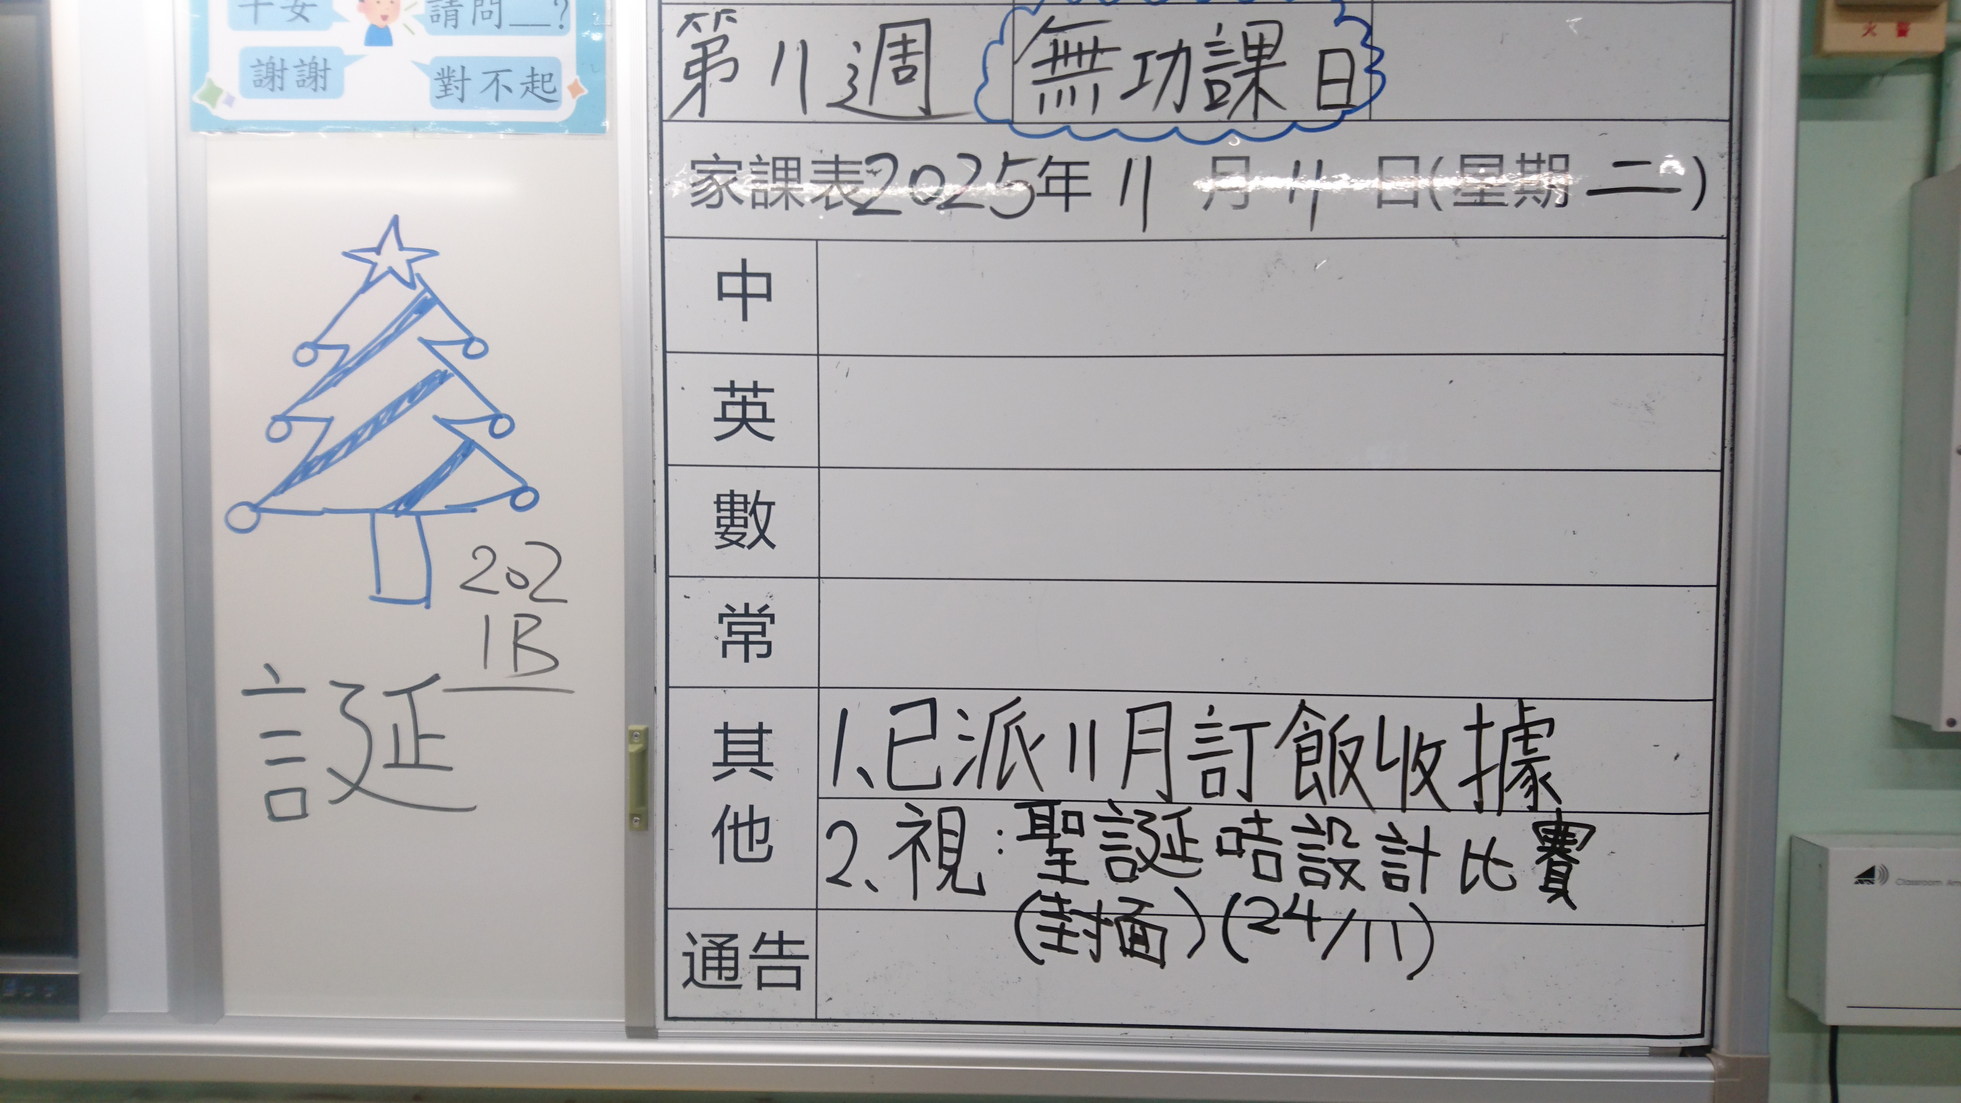 平安
請問__?
謝謝
對不起
第11週 無功課日
家課表2025年 11 月 11 日(星期 二)
中
英
數
常
其他
1.已派11月訂飯收據
2.視:聖誕咭設計比賽
(封面)(24/11)
通告
202
1B
誕
火警